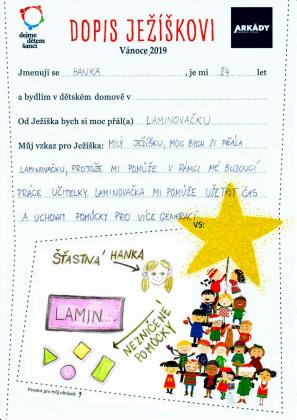 dejme
dětem
šanci
DOPIS JEŽÍŠKOVI
ARKÁDY
Vánoce 2019
Jmenuji se HANKA, je mi 24 let
a bydlím v dětském domově v
Od Ježíška bych si moc přál(a) LAMINOVAČKU
Můj vzkaz pro Ježíška: MILÝ JEŽÍŠKU, MOC BYCH SI PŘÁLA
LAMINOVAČKU, PROTOŽE MI POMŮŽE V RÁMCI MÉ BUDOUCÍ
PRÁCE UČITELKY. LAMINOVAČKA MI POMŮŽE UŠETŘIT ČAS
A UCHOVAT POMŮCKY PRO VÍCE GENERACÍ.
VS:
ŠŤASTNÁ HANKA
LAMIN...
NEZNIČENÉ
POMŮCKY
Prostor pro tvůj obrázek